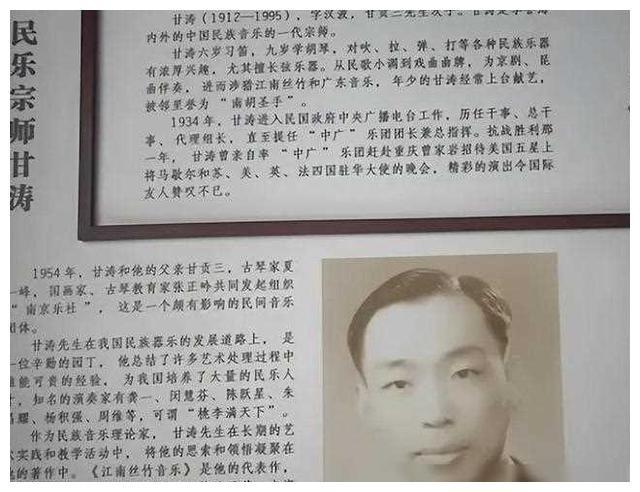 民乐宗师甘涛
甘涛（1912—1995），字汉波，甘贡三先生次子。
内外的中国民族音乐的一代宗师。
甘涛六岁习笛，九岁学胡琴，对吹、拉、弹、打等各种民族乐器
有浓厚兴趣，尤其擅长弦乐器。从民歌小调到戏曲曲牌，为京剧、昆
曲伴奏，进而涉猎江南丝竹和广东音乐，年少的甘涛经常上台献艺，
被邻里誉为“南胡圣手”。
1934年，甘涛进入民国政府中央广播电台工作，历任干事、总干
事、代理组长，直至提任“中广”乐团团长兼总指挥。抗战胜利那
一年，甘涛曾亲自率“中广”乐团赶赴重庆曾家岩招待美国五星上
将马歇尔和苏、美、英、法四国驻华大使的晚会，精彩的演出令国际
友人赞叹不已。
1954年，甘涛和他的父亲甘贡三，古琴家夏
一峰，国画家、古琴教育家张正吟共同发起组织
“南京乐社”，这是一个颇有影响的民间音乐
团体。
甘涛先生在我国民族器乐的发展道路上，是
位辛勤的园丁，他总结了许多艺术处理过程中
能可贵的经验，为我国培养了大量的民乐人
，知名的演奏家有龚一、闵慧芬、陈跃星、朱
昌耀、杨积强、周维等，可谓“桃李满天下”。
作为民族音乐理论家，甘涛先生在长期的艺
实践和教学活动中，将他的思索和领悟凝聚在
的著作中。《江南丝竹音乐》是他的代表作，